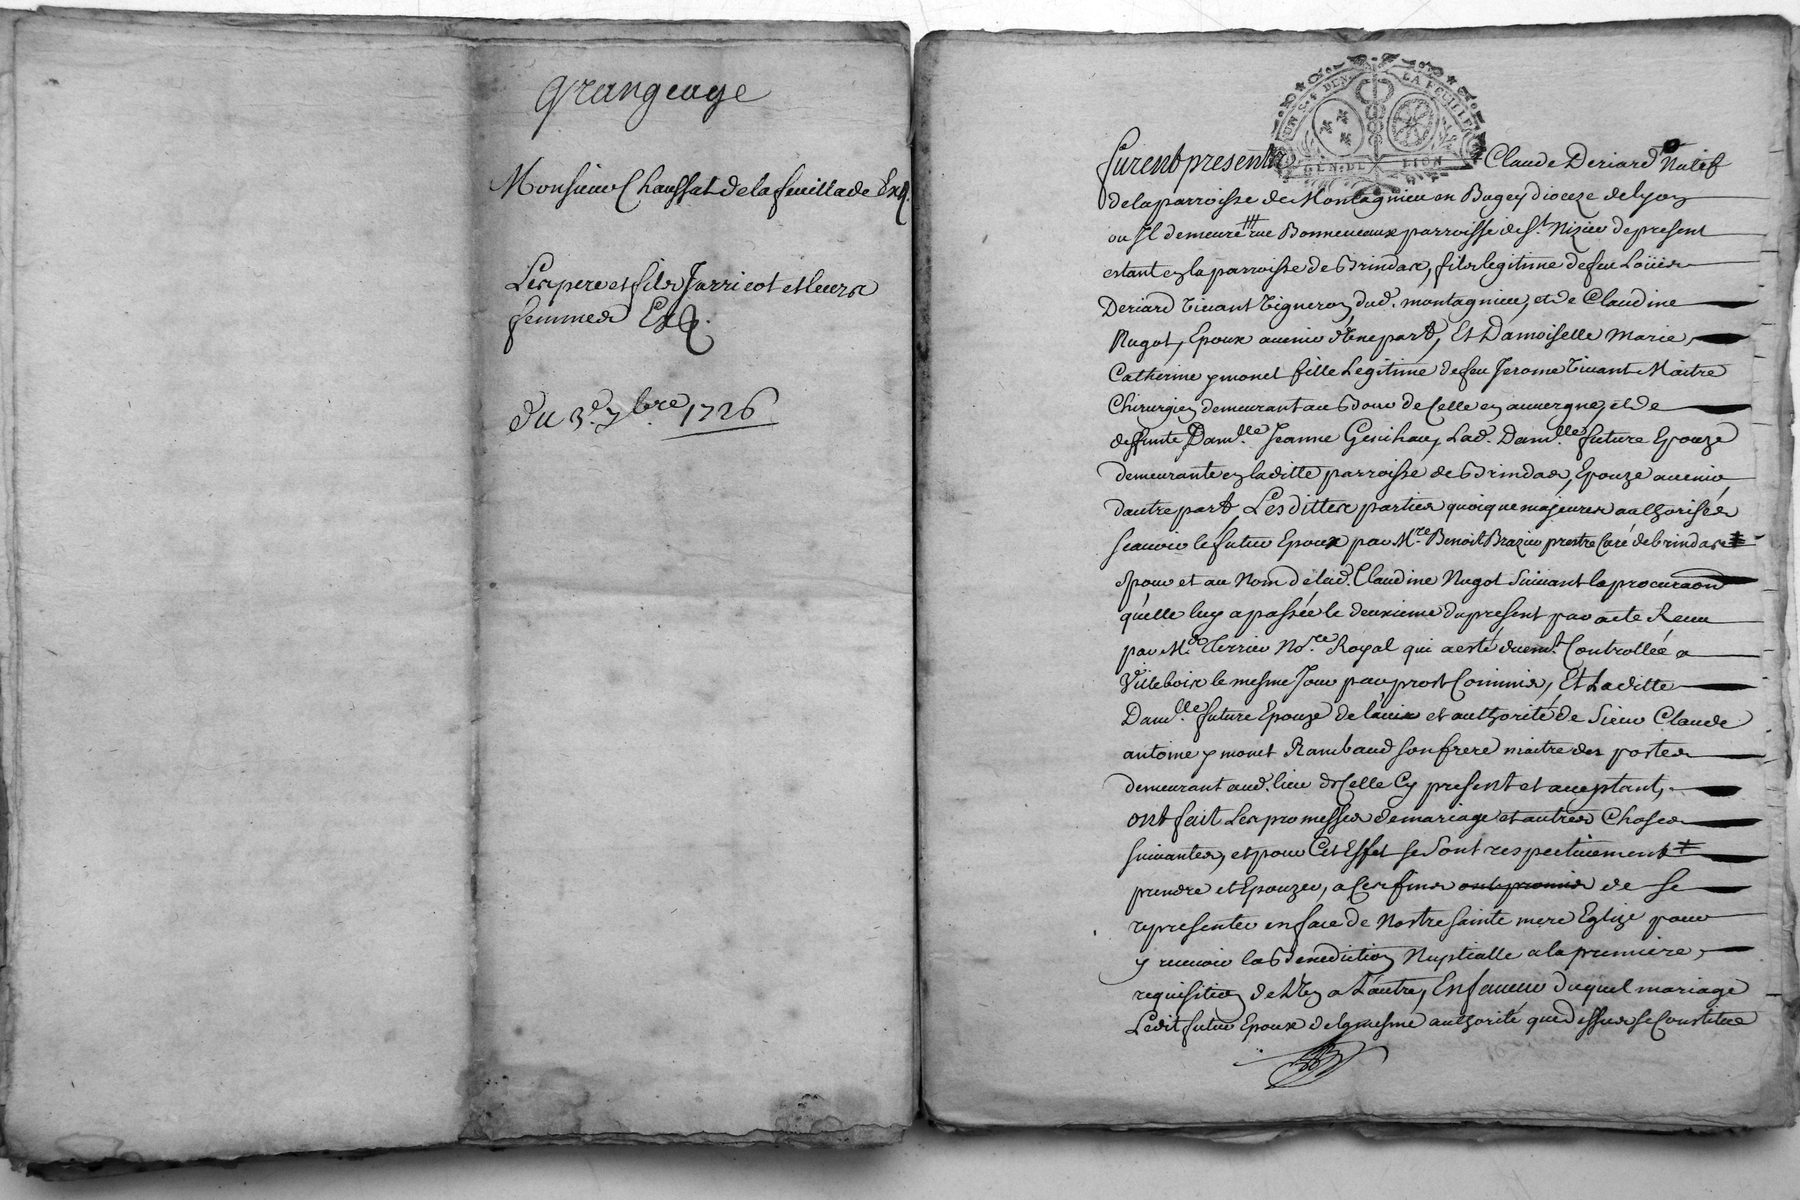 Grangeage
Monsieur Chaussat de la feuillade Ex
Les pere et fils Jarricot et leurs
femmes Ex
Du 3.e 7bre. 1726
UN S. 4 DEN. LA FEUILLE
GEN. DE LION
furent presents Claude Deriard Natif
de la parroisse de Montagnieu en Bugey dioceze de lyon
ou Il demeure rue Bonneveaux parroisse de St. Nizier de present
estant en la parroisse de Brindas, fils legitime de feu Loüis
Deriard vivant vigneron dud. montagnieu, et de Claudine
Nugot, Epoux avenir d'une part, Et Damoiselle Marie
Catherine ymonet fille Legitime de feu Jerome vivant Maitre
Chirurgien demeurant au Bour de Celle en auvergne, et de
deffunte Dam.lle Jeanne Lad. Dam.lle future Epouze
demeurante en laditte parroisse de Brindas, Epouze avenir
d'autre part, Lesdittes parties quoique majeures authorisées
scavoir le futur Epoux par Mre. Benoit Brazier prestre Curé de brindas
pour et au Nom de lad. Claudine Nugot suivant la procuraon
quelle luy a passée le deuxieme du present par acte Receu
par Me. Terrier No.re Royal qui a esté duem.t Controllée a
Villebois le mesme Jour par prost Commis, Et Laditte
Dam.lle future Epouze de l'avis et authorité de Sieur Claude
antoine ymonet Rambaud son frere maitre des postes
demeurant aud. lieu de Celle Cy present et acceptant,
ont fait Les promesses de mariage et autres Choses
suivantes, et pour Cet Effet se sont respectivement
prendre et Epouzer, a Ces fins ont promis de se
representer en face de Nostre sainte mere Eglize pour
y recevoir la Benediction Nuptialle a la premiere
requisition de L'un a L'autre, En faveur duquel mariage
Ledit futur Epoux de la mesme authorité que dessus se Constitue